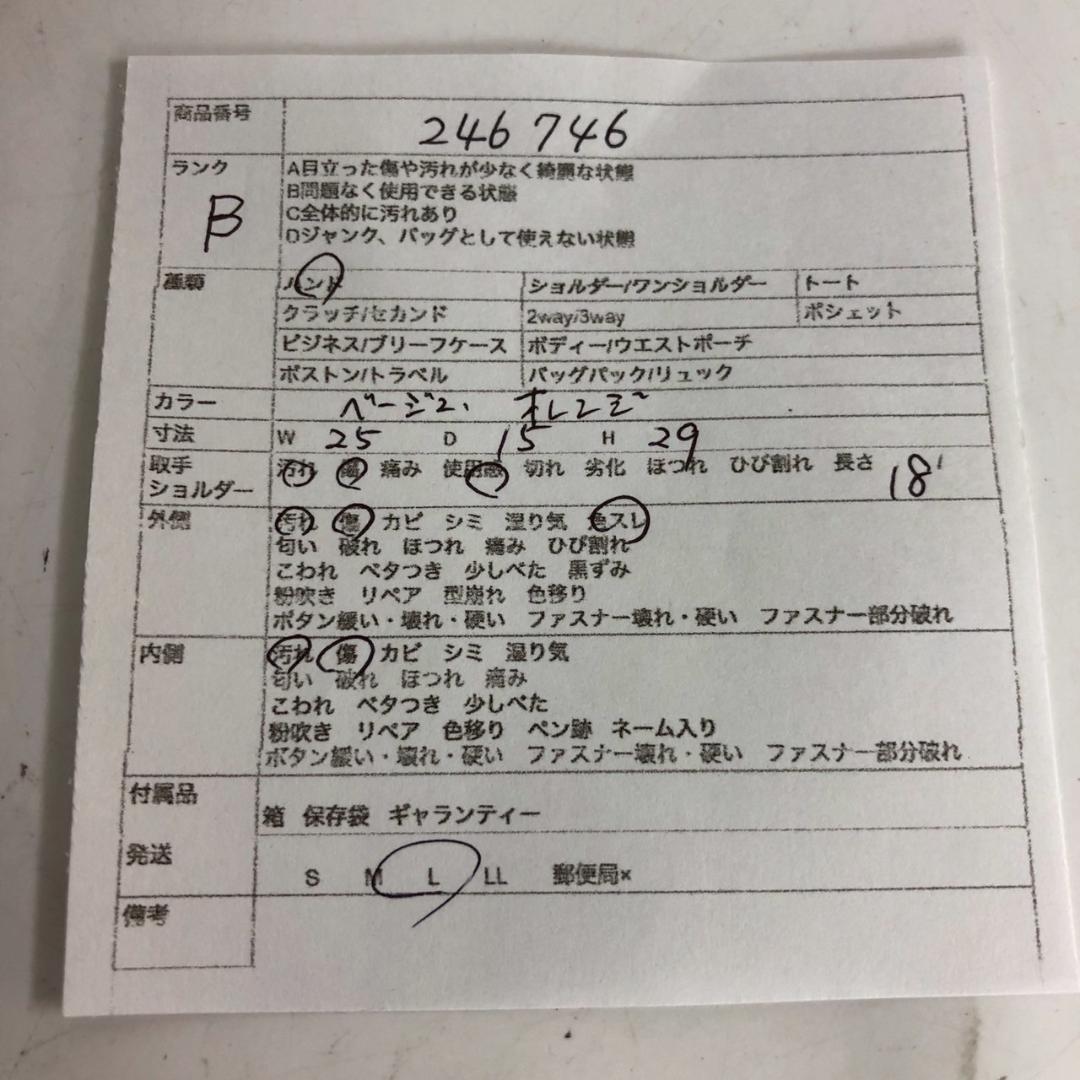 商品番号 246746
ランク B A目立った傷や汚れが少なく綺麗な状態
B問題なく使用できる状態
C全体的に汚れあり
Dジャンク、バッグとして使えない状態
種類 ハンド ショルダー/ワンショルダー トート
クラッチ/セカンド 2way/3way ポシェット
ビジネス/ブリーフケース ボディー/ウエストポーチ
ボストン/トラベル バッグパック/リュック
カラー ベージュ、オレンジ
寸法 W 25 D 15 H 29
取手 汚れ 傷 痛み 使用感 切れ 劣化 ほつれ ひび割れ 長さ 18
ショルダー
外側 汚れ 傷 カビ シミ 湿り気 色スレ
匂い 破れ ほつれ 痛み ひび割れ
こわれ ベタつき 少しべた 黒ずみ
粉吹き リペア 型崩れ 色移り
ボタン緩い・壊れ・硬い ファスナー壊れ・硬い ファスナー部分破れ
内側 汚れ 傷 カビ シミ 湿り気
匂い 破れ ほつれ 痛み
こわれ ベタつき 少しべた
粉吹き リペア 色移り ペン跡 ネーム入り
ボタン緩い・壊れ・硬い ファスナー壊れ・硬い ファスナー部分破れ
付属品 箱 保存袋 ギャランティー
発送 S M L LL 郵便局×
備考